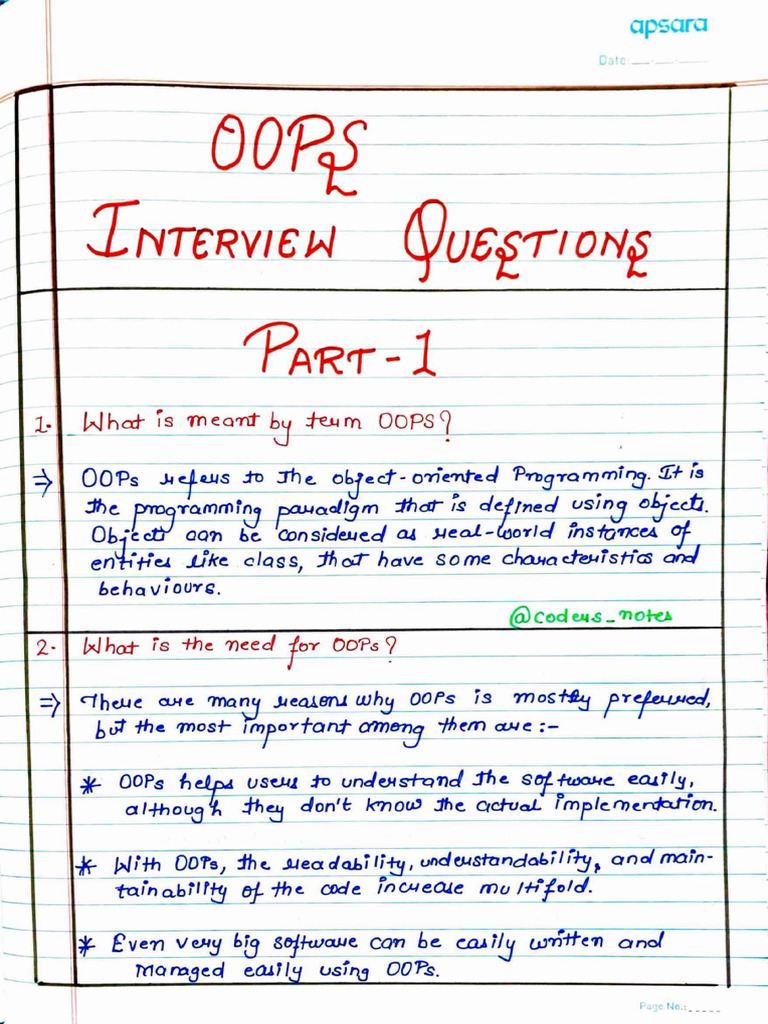 apsara
Date:
OOPS
INTERVIEW QUESTIONS
PART-1
1. What is meant by term OOPS?
⇒ OOPs refers to the object-oriented Programming. It is
the programming paradigm that is defined using objects.
Objects can be considered as real-world instances of
entities like class, that have some characteristics and
behaviours.
@coders_notes
2. What is the need for OOPs?
⇒ There are many reasons why OOPs is mostly preferred,
but the most important among them are :-
* OOPs helps users to understand the software easily,
although they don't know the actual implementation.
* With OOPs, the readability, understandability, and main-
tainability of the code increase multifold.
* Even very big software can be easily written and
managed easily using OOPs.
Page No.: